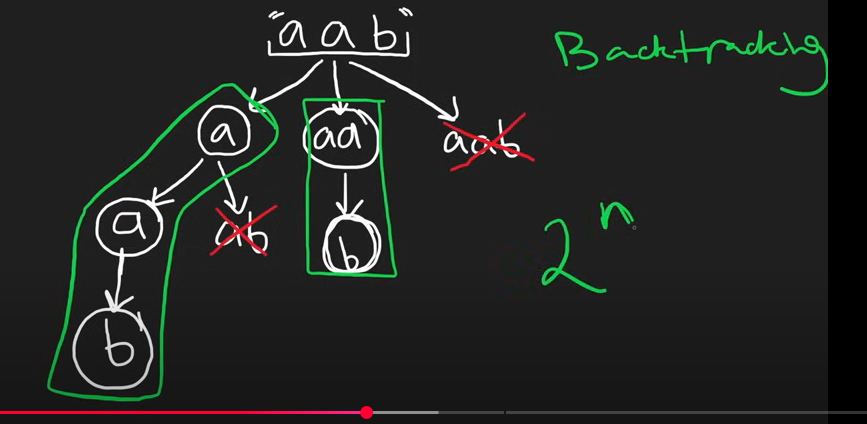 "aab"
Backtracking
a
aa
aab
a
ab
b
2^n
b